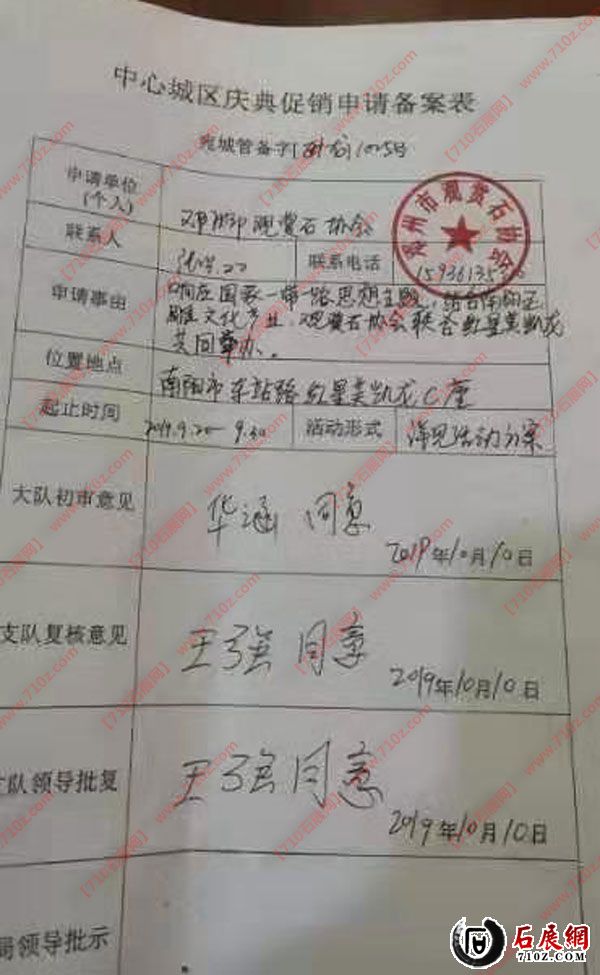 中心城区庆典促销申请备案表
宛城管备字[
1005号
申请单位
(个人)
邓州市观赏石协会
联系人
联系电话
159361355
邓州市观赏石协会
申请事由
响应国家一带一路思想主题,结合南阳玉
雕文化产业,观赏石协会联合红星美凯龙
共同举办。
位置地点
南阳市车站路红星美凯龙C座
起止时间
2019.9.20-9.30
活动形式
详见活动方案
大队初审意见
华涵 同意
2019年10月10日
支队复核意见
王强 同意
2019年10月10日
队领导批复
王强 同意
2019年10月10日
局领导批示
【710z石展网】www.710z.com
石展網
710Z.COM